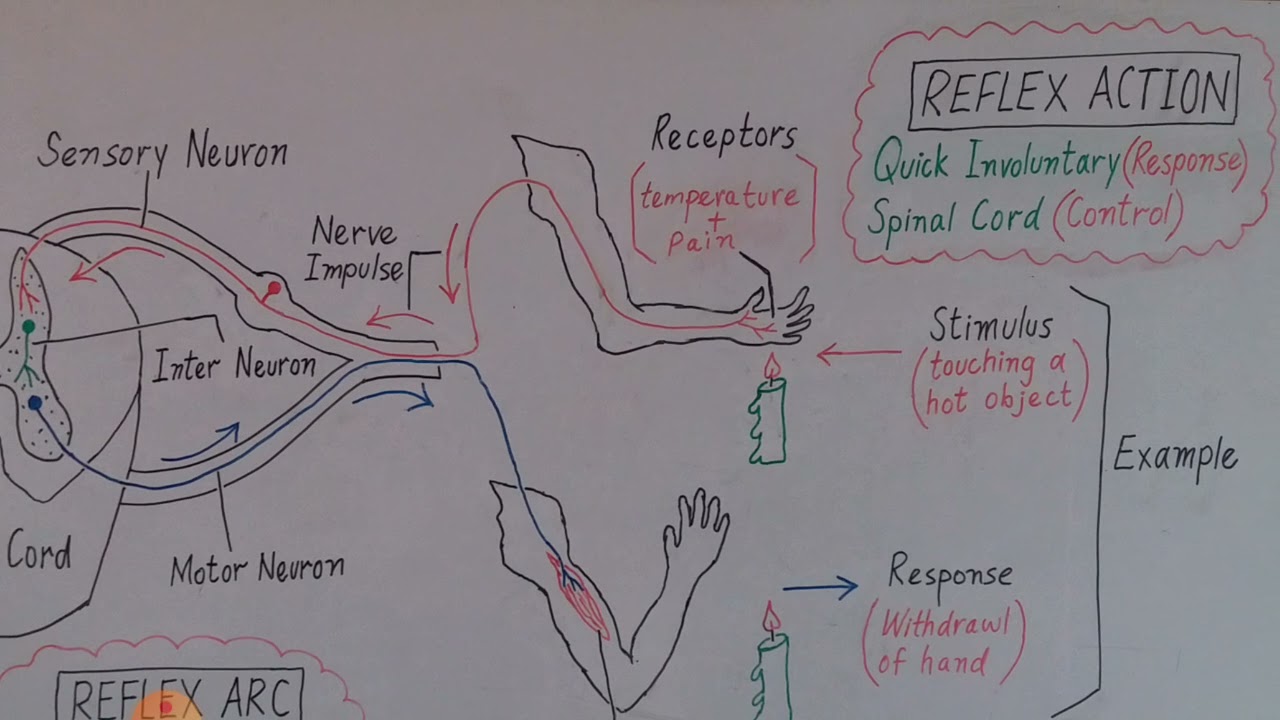 REFLEX ACTION
Quick Involuntary (Response)
Spinal Cord (Control)
Sensory Neuron
Receptors
(temperature
+
Pain)
Nerve
Impulse
Inter Neuron
Stimulus
(touching a
hot object)
Example
Cord
Motor Neuron
Response
(Withdrawl
of hand)
REFLEX ARC